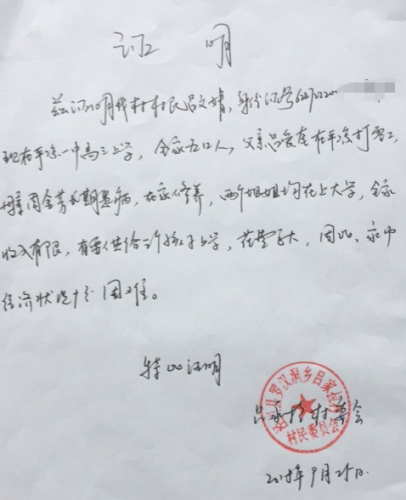 证 明
兹证明我村村民吕文婧，身份证号622722
现在平凉一中高三上学，全家五口人，父亲吕爱 在平凉打零工，
母亲周金芳长期患病，在家修养，两个姐姐均在上大学，全家
收入有限，有要供给三个孩子上学，花费较大，因此，家中
经济状况十分困难。
特此证明
罗汉洞乡吕家拉
村民委员会
村委会
年9月25日